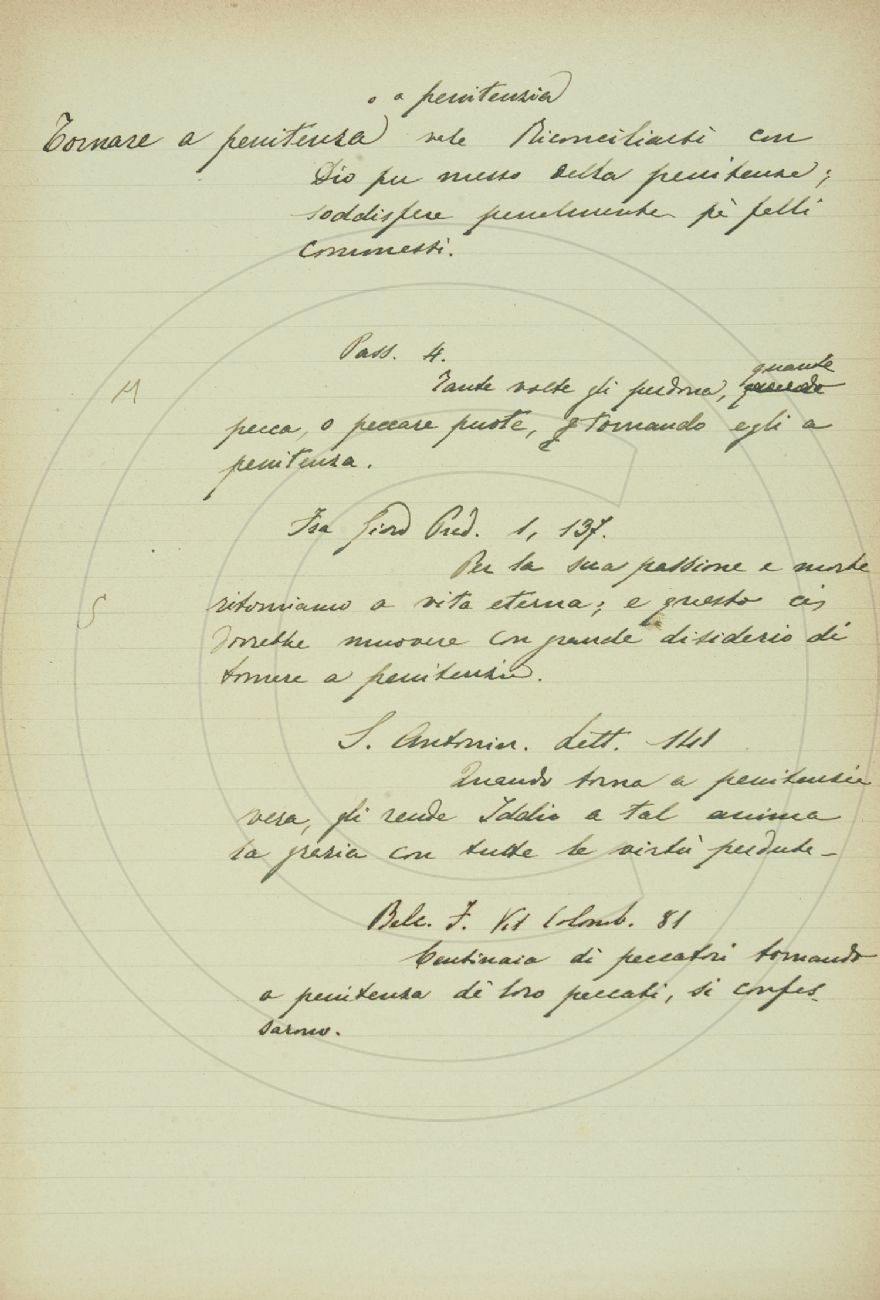 o a penitenzia
Tornare a penitenza vale Riconciliarsi con
Dio per mezzo della penitenza;
soddisfare penalmente pe' falli
commessi.
Pass. 4.
Tante volte gli perdona, quante
M
pecca, o peccare puote, tornando egli a
penitenza.
Fra Giord Pred. 1, 137.
Per la sua passione e morte
ritorniamo a vita eterna; e questo ci
S
dovrebbe muovere con grande disiderio di
tornare a penitenzia.
S. Antonin. Lett. 141
Quando torna a penitenzia
vera, gli rende Iddio a tal anima
la grazia con tutte le virtù perdute-
Belc. F. Vit Colomb. 81
Centinaia di peccatori tornando
a penitenza de' loro peccati, si confes-
sarono.